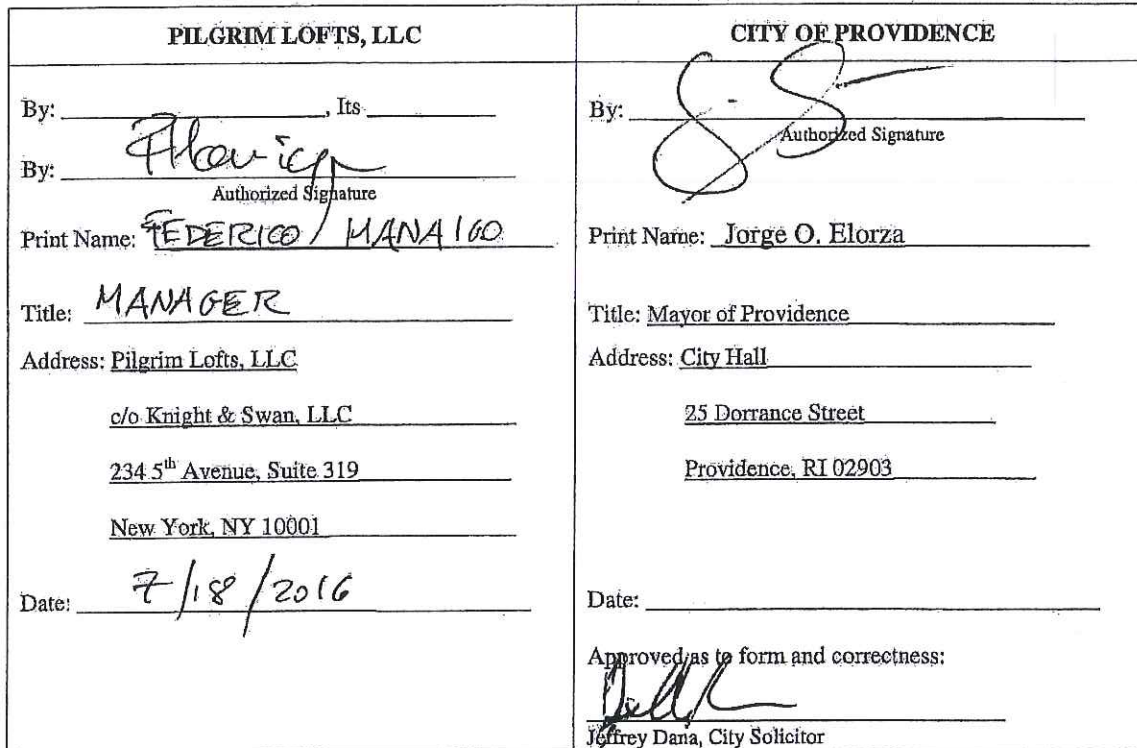 PILGRIM LOFTS, LLC
By: , Its
By:
Authorized Signature
Print Name: FEDERICO MANAIGO
Title: MANAGER
Address: Pilgrim Lofts, LLC
c/o Knight & Swan, LLC
234 5th Avenue, Suite 319
New York, NY 10001
Date: 7/18/2016
CITY OF PROVIDENCE
By:
Authorized Signature
Print Name: Jorge O. Elorza
Title: Mayor of Providence
Address: City Hall
25 Dorrance Street
Providence, RI 02903
Date:
Approved as to form and correctness:
Jeffrey Dana, City Solicitor